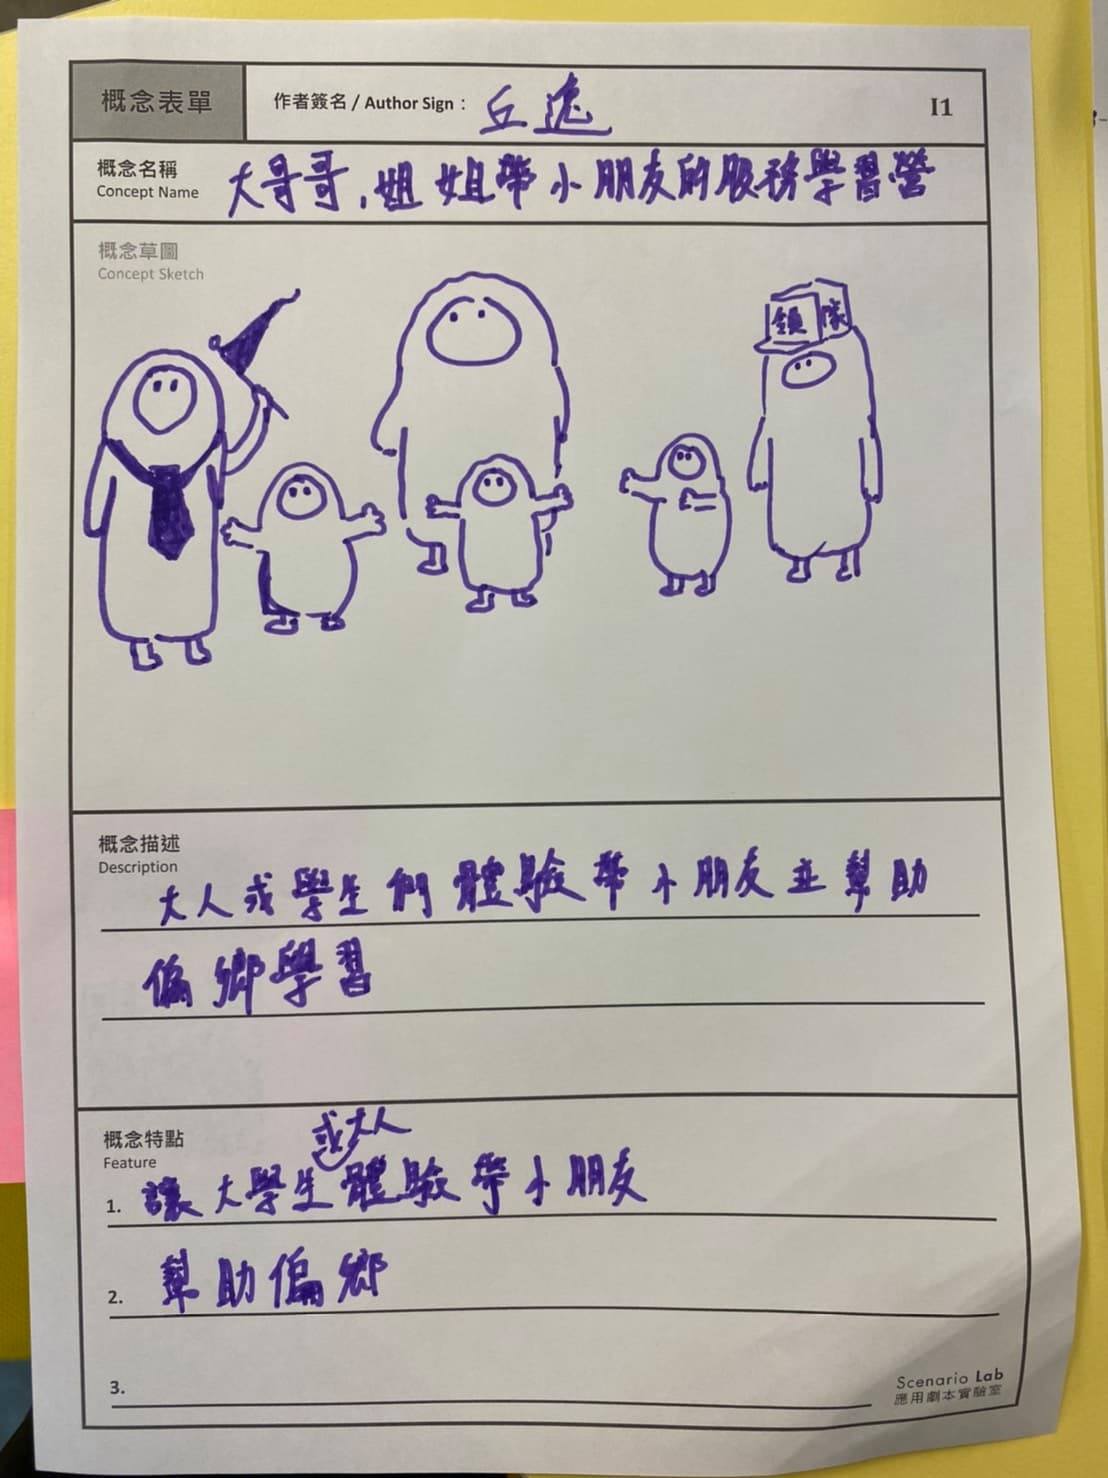 概念表單
作者簽名 / Author Sign：丘
I1
概念名稱
Concept Name
大哥哥,姐姐帶小朋友的服務學習營
概念草圖
Concept Sketch
領隊
概念描述
Description
大人或學生們體驗帶小朋友並幫助
偏鄉學習
概念特點
Feature
或大人
1. 讓大學生體驗帶小朋友
2. 幫助偏鄉
3.
Scenario Lab
應用劇本實驗室